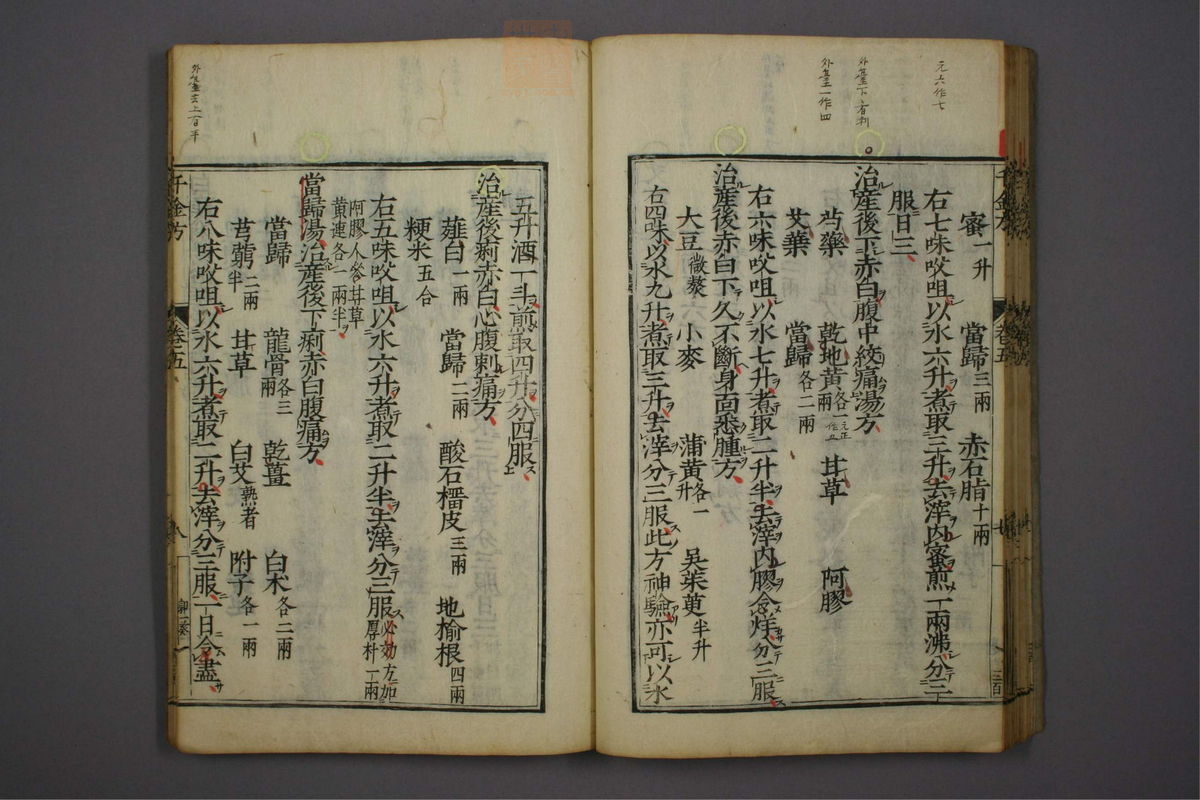 元六作七
外臺下有利
外臺一作四
蜜一升 當歸三兩 赤石脂十兩
右七味㕮咀以水六升煮取三升去滓內蜜煎一兩沸分三
服日三
治產後下赤白腹中絞痛湯方
芍藥 乾地黃各一兩 元正作五 甘草 阿膠
艾葉 當歸各二兩
右六味㕮咀以水七升煮取二升半去滓內膠令烊分三服
治產後赤白下久不斷身面悉腫方
大豆微熬 小麥 蒲黃各一升 吳茱萸半升
右四味以水九升煮取三升去滓分三服此方神驗亦可以水
千金方 卷五
五升酒一斗煎取四升分四服
治產後痢赤白心腹刺痛方
薤白一兩 當歸二兩 酸石榴皮三兩 地榆根四兩
粳米五合
右五味㕮咀以水六升煮取二升半去滓分三服必効方加厚朴一兩
阿膠人參甘草黃連各一兩半
當歸湯治產後下痢赤白腹痛方
當歸 龍骨各三兩 乾薑 白朮各二兩
芎藭二兩半 甘草 白艾熟者 附子各一兩
右八味㕮咀以水六升煮取二升去滓分三服一日令盡
千金方 卷五 八